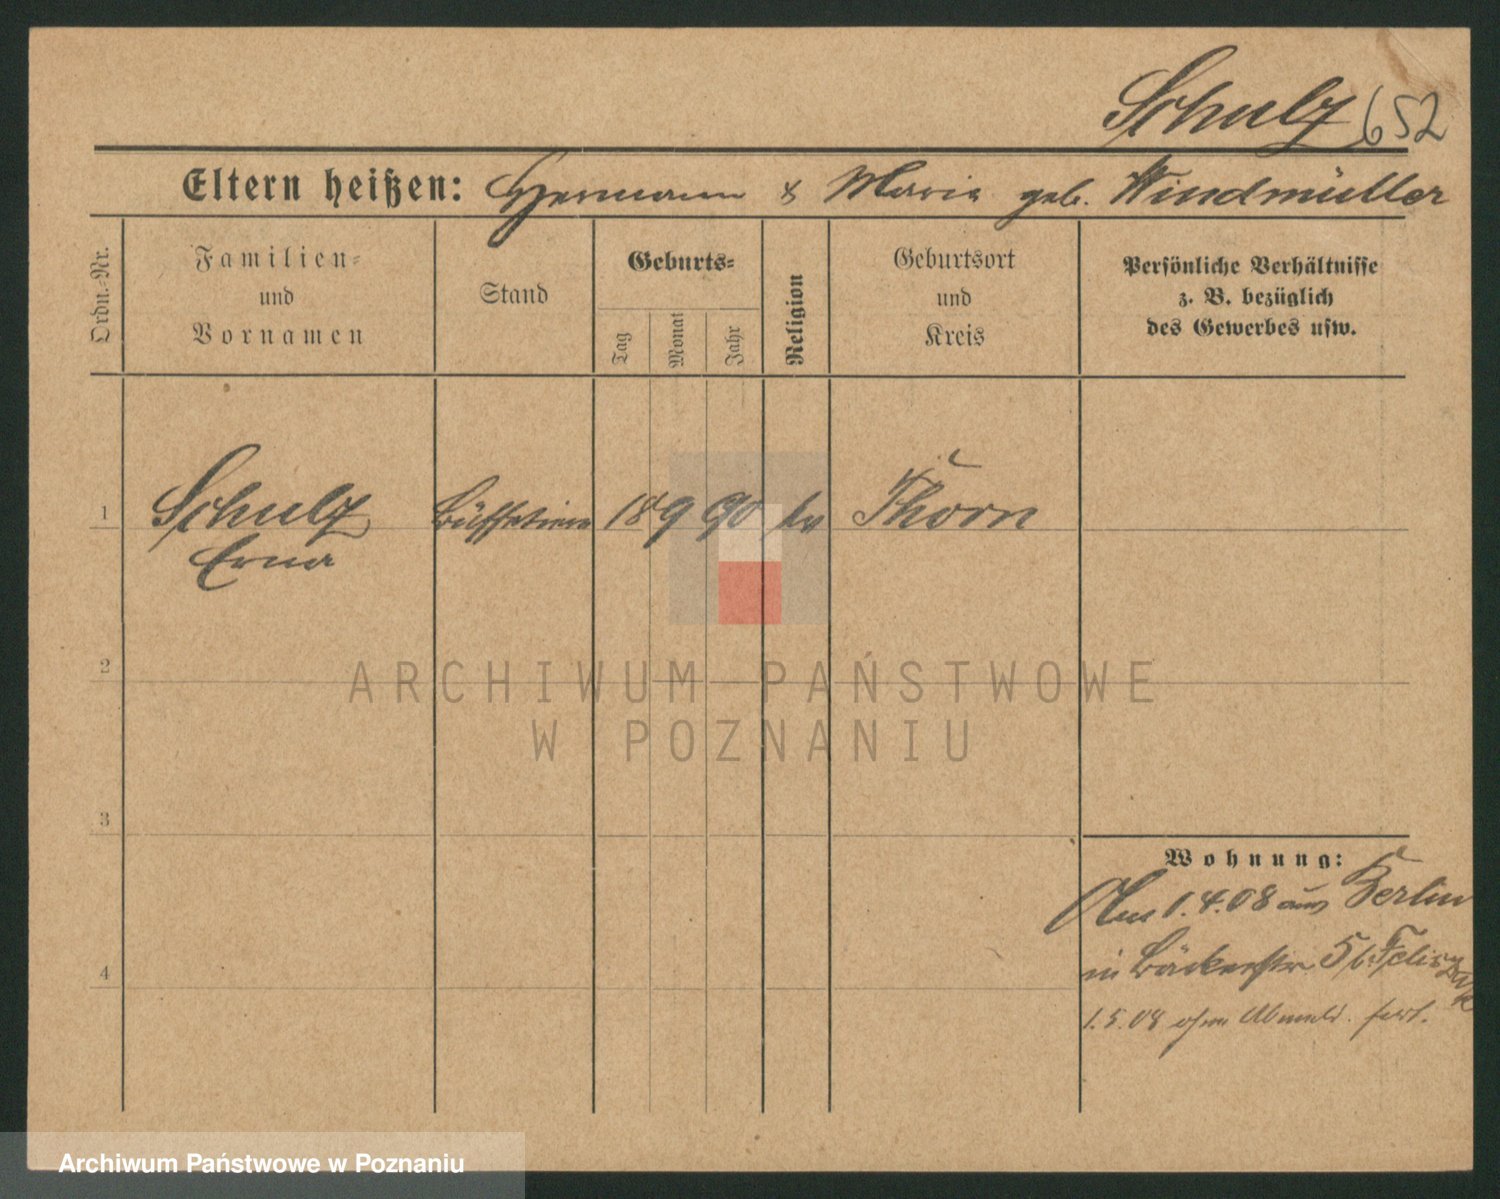 Schulz 652
Eltern heißen: Hermann & Maria geb. Windmüller
Ordn.-Nr.
Familien-
und
Vornamen
Stand
Geburts-
Tag
Monat
Jahr
Religion
Geburtsort
und
Kreis
Persönliche Verhältnisse
z. B. bezüglich
des Gewerbes usw.
1 Schulz Büffetiere 18 9 90 Thorn
Erna
2
ARCHIWUM PAŃSTWOWE
W POZNANIU
3
Wohnung:
Am 1.4.08 aus Berlin
in Bäckerstr. 5 b.
4
1.5.08 ohne Abmeld. fort.
Archiwum Państwowe w Poznaniu